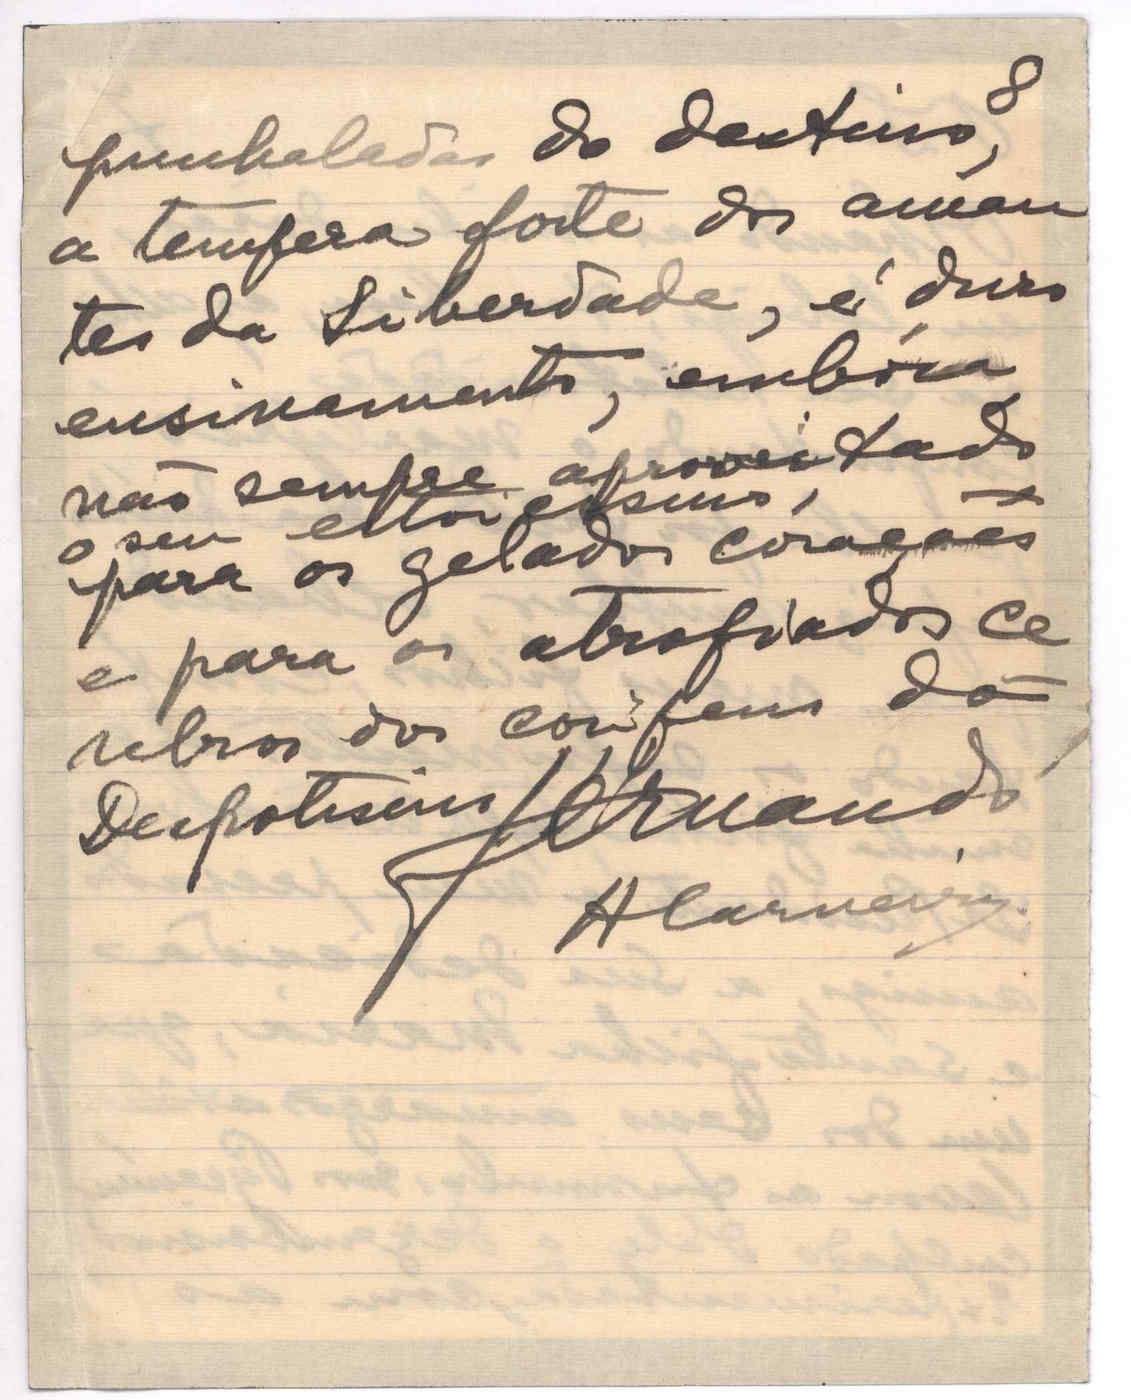 8
punhaladas do destino,
a tempera forte dos aman
tes da Liberdade, é duro
ensinamento, embóra
não sempre aproveitado
o seu estoicismo,
para os gelados corações
e para os atrofiados ce
rebros dos corifeus do
Despotismo
Fernando
A Carneiro.